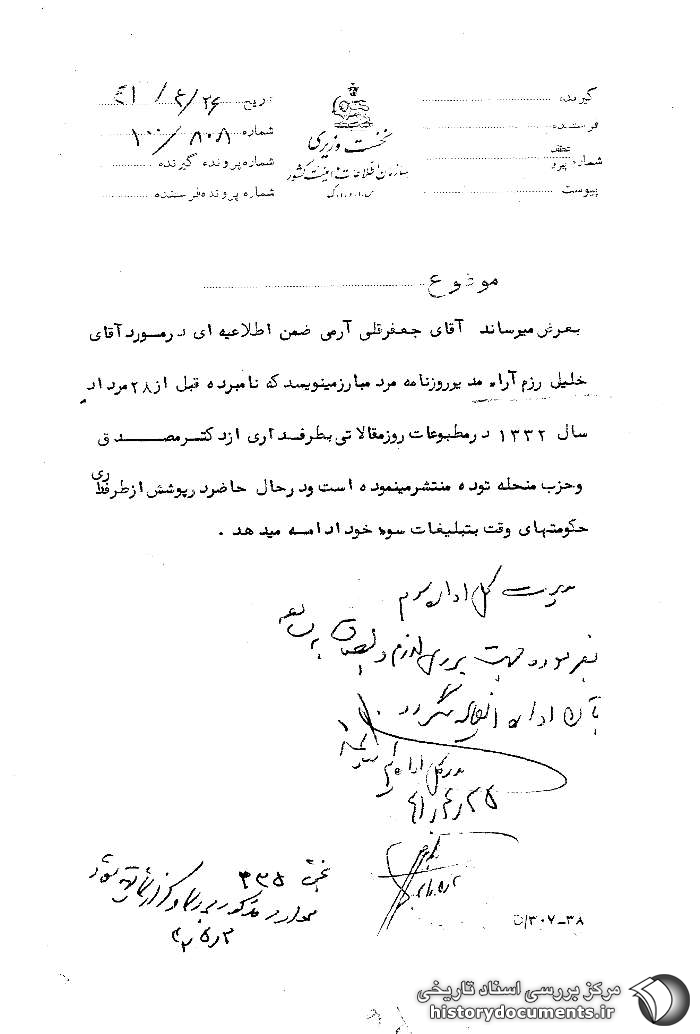 گیرنده
فرستنده
عطف
شماره پیرو
پیوست
نخست وزیری
سازمان اطلاعات و امنیت کشور
س.ا.و.ا.ک
تاریخ ۴۱/۴/۲۶
شماره ۱۰۰/۸۰۸
شماره پرونده گیرنده
شماره پرونده فرستنده
موضوع
بعرض میرساند آقای جعفرقلی آرمی ضمن اطلاعیه ای درمورد آقای
خلیل رزم آراء مدیر روزنامه مرد مبارز مینویسد که نامبرده قبل از ۲۸ مرداد
سال ۱۳۳۲ در مطبوعات روز مقالاتی بطرفداری از دکتر مصدق
و حزب منحله توده منتشر مینموده است و در حال حاضر در پوشش از طرفداری
حکومتهای وقت بتبلیغات سوء خود ادامه میدهد .
مدیریت کل اداره سوم
جهت بررسی لازم و
بآن اداره گردد
مدیر کل اداره
۴۱/۴/۲۵
بخش ۳۳۵
موارد مذکور بررسی و گزارش
۳۸-۳۰۷/ت
مرکز بررسی اسناد تاریخی
historydocuments.ir